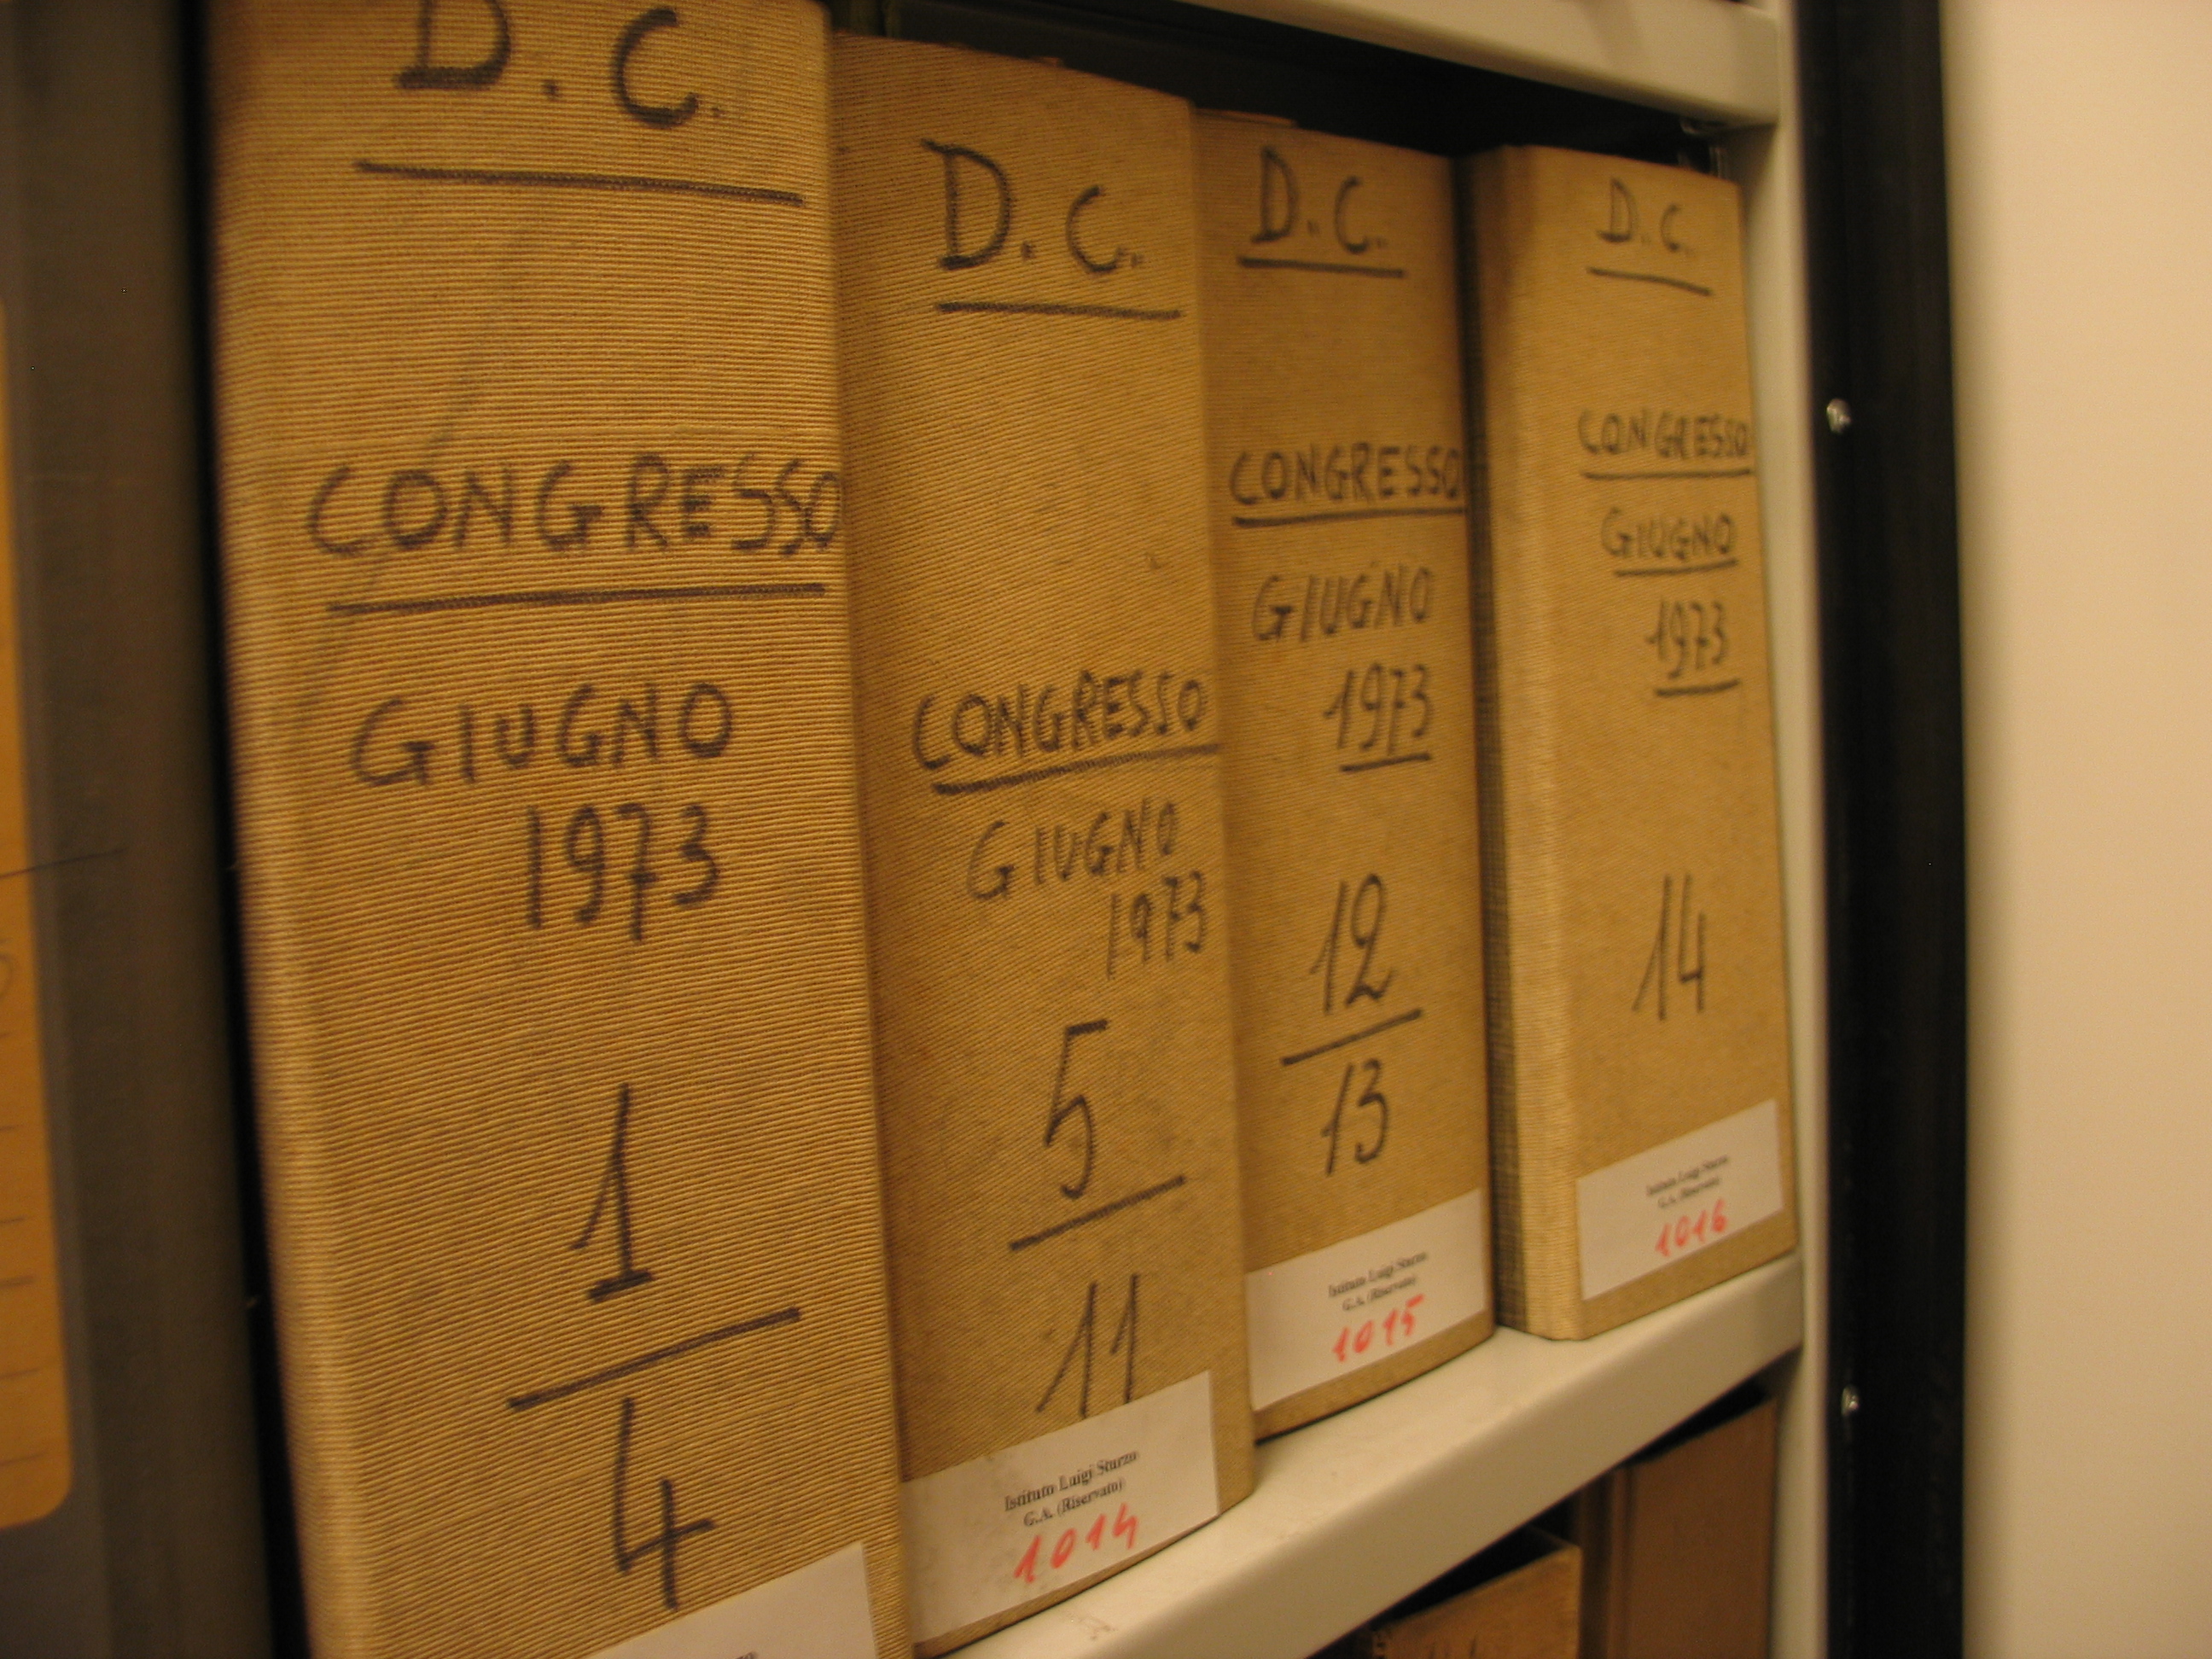 D. C.
CONGRESSO
GIUGNO
1973
1
4
D. C.
CONGRESSO
GIUGNO
1973
5
11
Istituto Luigi Sturzo
G.A. (Riservato)
1014
D. C.
CONGRESSO
GIUGNO
1973
12
13
Istituto Luigi Sturzo
G.A. (Riservato)
1015
D. C.
CONGRESSO
GIUGNO
1973
14
Istituto Luigi Sturzo
G.A. (Riservato)
1016